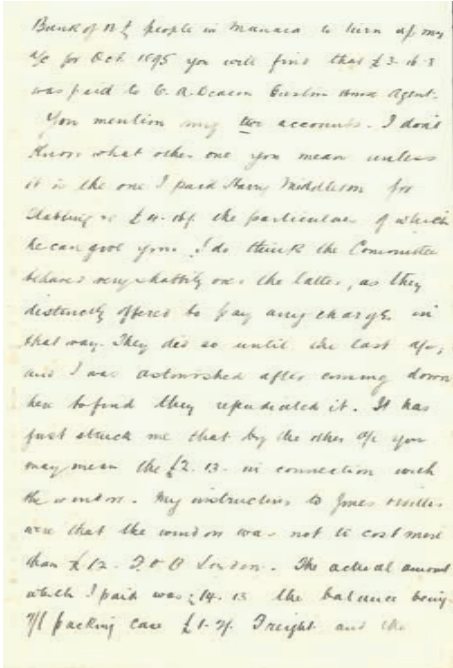 Bank of N Z people in Manaia to turn up my
a/c for Oct 1895 you will find that £3-16-8
was paid to C. A. Deacon Custom House Agent.
You mention my two accounts. I don't
know what other one you mean unless
it is the one I paid Harry Middleton for
Stabling £4. the particulars of which
he can give you. I do think the Committee
behaved very shabbily over the latter, as they
distinctly offered to pay any charges in
that way. They did so until the last a/c,
and I was astonished after coming down
here to find they repudiated it. It has
just struck me that by the other a/c you
may mean the £2. 13. in connection with
the window. My instructions to Jones & Willis
were that the window was not to cost more
than £12. F.O.B London. The actual amount
which I paid was £14. 13 the balance being
packing case £1. Freight and the